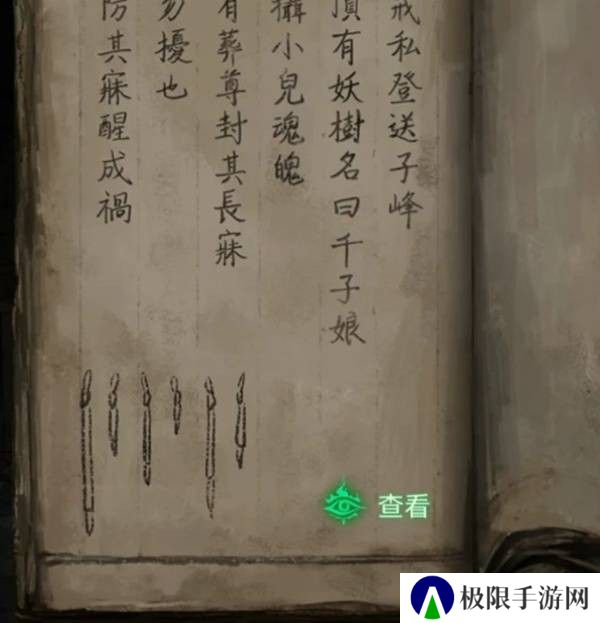 戒私登送子峰
頂有妖樹名曰千子娘
攝小兒魂魄
有葬尊封其長寐
勿擾也
防其寐醒成禍
查看
极限手游网